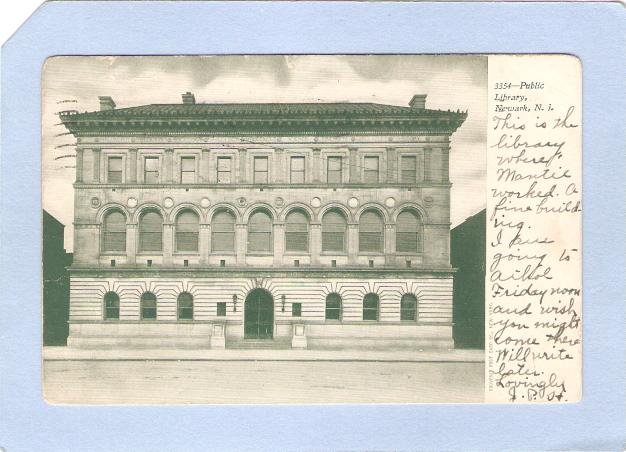 3354—Public
Library,
Newark, N. J.
This is the
library
where
Mantie
worked. A
fine build
ing.
I am
going to
Friday noon
and wish
you might
come there
Will write
later.
Lovingly
J. P. H.